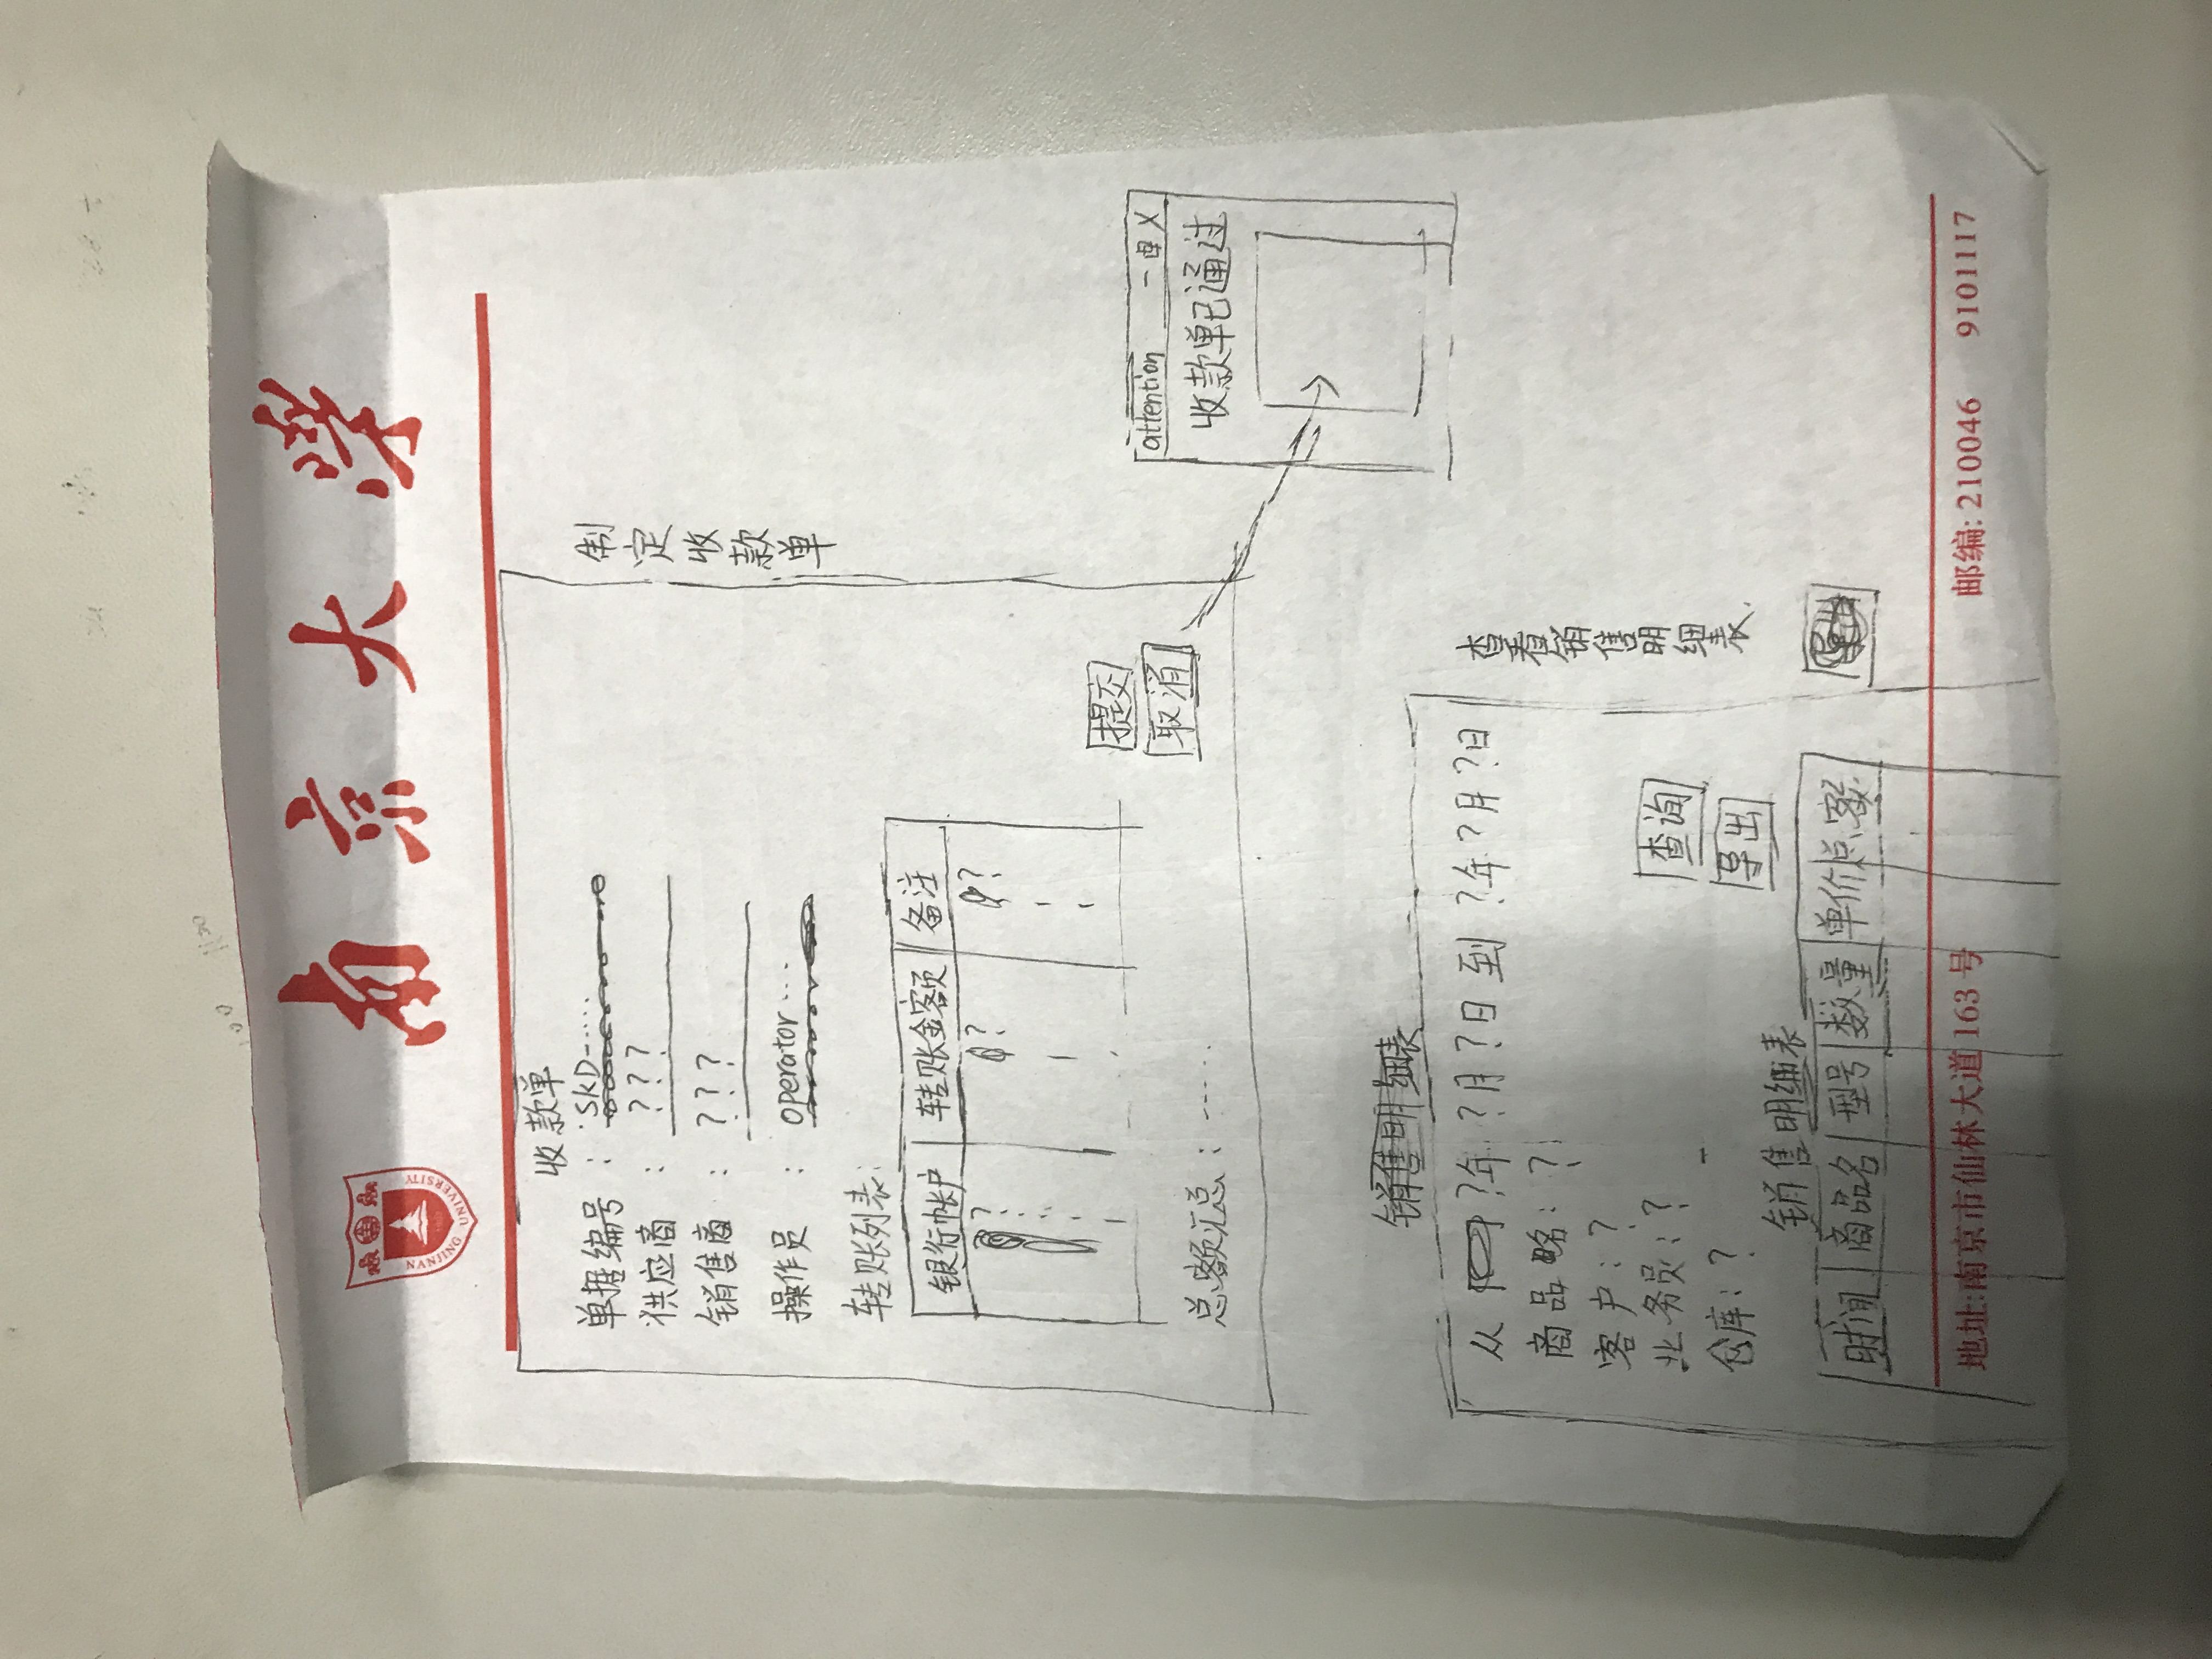 南京大学
NANJING UNIVERSITY
制定收款单
收款单
单据编号 : SKD-.....
供应商 : ? ? ?
销售商 : ? ? ?
操作员 : operator...
转账列表:
银行帐户 转账金额 备注
? ? ?
总额汇总 : .....
提交
取消
attention — X
收款单已通过
查看销售明细表
销售明细表
从 ?年 ?月 ?日 到 ?年 ?月 ?日
商品名: ?
客户: ?
业务员: ? ?
仓库: ?
查询
导出
销售明细表
时间 商品名 型号 数量 单价 总额
地址:南京市仙林大道 163 号 邮编: 210046 9101117